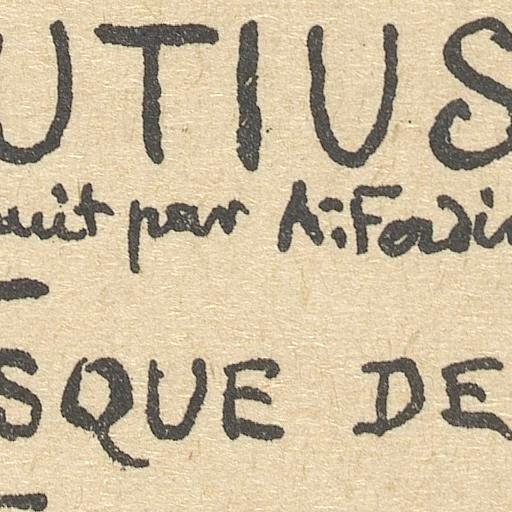 UTIUS
uit par A: Fordin
SQUE DE